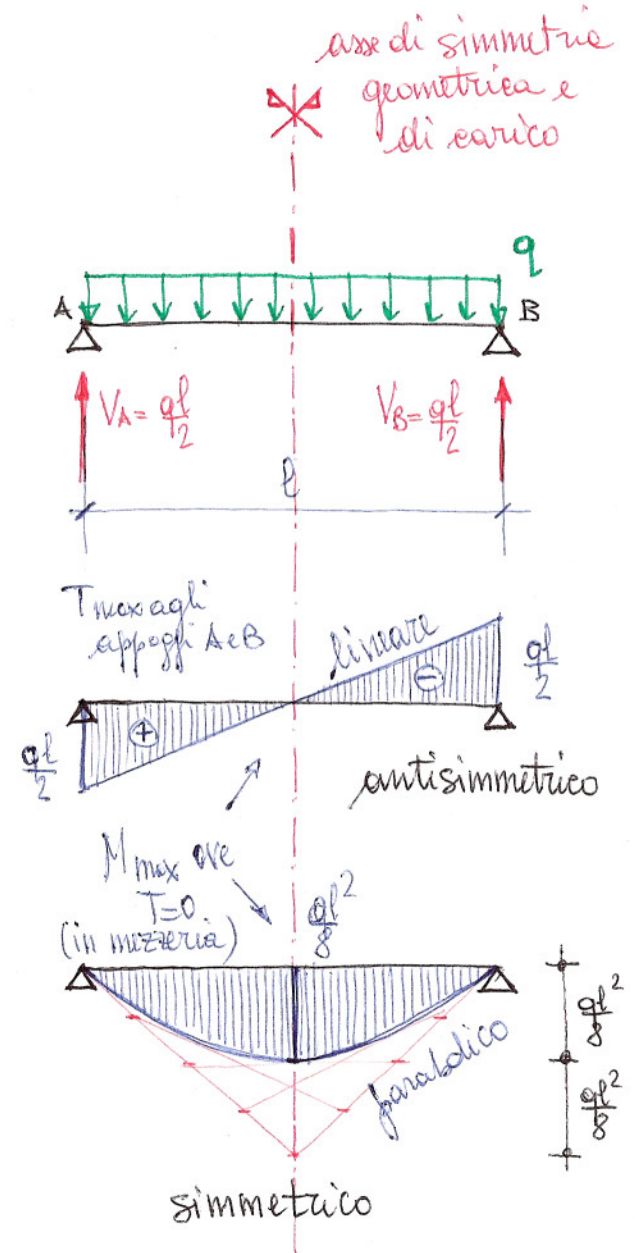 asse di simmetria
geometrica e
di carico
q
A
B
V_A = ql/2
V_B = ql/2
l
T max agli
appoggi A e B
lineare
ql/2
-
+
ql/2
antisimmetrico
M max ove
T=0
(in mezzeria)
ql²/8
ql²/8
parabolico
ql²/8
simmetrico